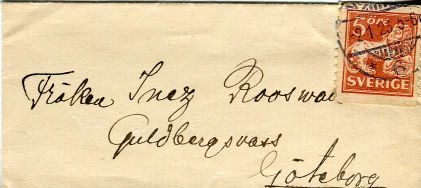 5 öre
SVERIGE
Fröken Inez Rooswal
Guldbergsvass
Göteborg